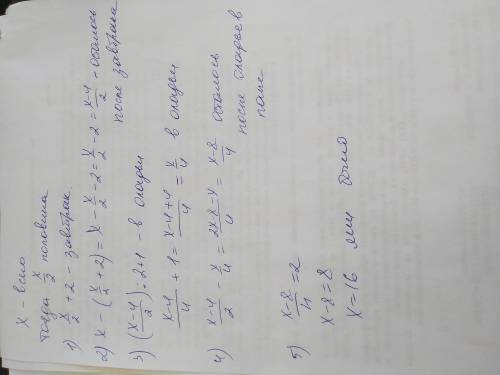 x - всего
тогда x/2 половина
1) x/2 + 2 - завтрак.
2) x - (x/2 + 2) = x - x/2 - 2 = x/2 - 2 = x-4/2 - осталось
после завтрака
3) (x-4/2) : 2 + 1 - в оладьи
x-4/4 + 1 = x-4+4/4 = x/4 в оладьи
4) x-4/2 - x/4 = 2x-8-x/4 = x-8/4 осталось
после оладьев
папе
5) x-8/4 = 2
x-8=8
x=16 яиц было